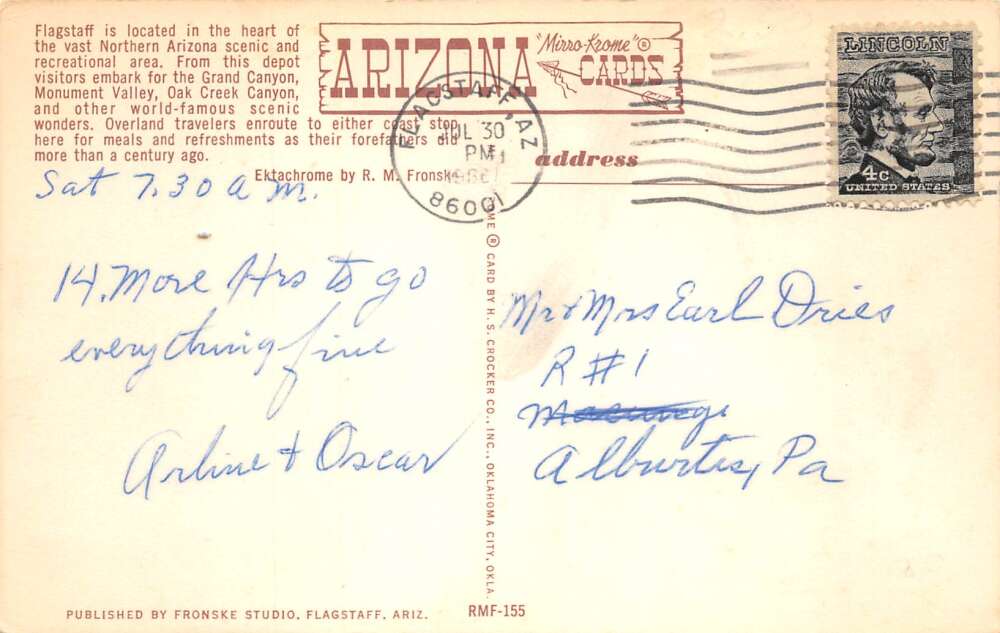 Flagstaff is located in the heart of
the vast Northern Arizona scenic and
recreational area. From this depot
visitors embark for the Grand Canyon,
Monument Valley, Oak Creek Canyon,
and other world-famous scenic
wonders. Overland travelers enroute to either coast stop
here for meals and refreshments as their forefathers did
more than a century ago.
Ektachrome by R. M. Fronske
ARIZONA "Mirro-Krome"® CARDS
FLAGSTAFF, AZ
JUL 30
PM
86001
address
LINCOLN
4c
UNITED STATES
Sat 7.30 a m.
14. More Hrs to go
everything fine
Arline + Oscar
Mr & Mrs Earl Dries
R #1
Alburtis, Pa
ME ® CARD BY H. S. CROCKER CO., INC., OKLAHOMA CITY, OKLA.
PUBLISHED BY FRONSKE STUDIO, FLAGSTAFF, ARIZ.
RMF-155